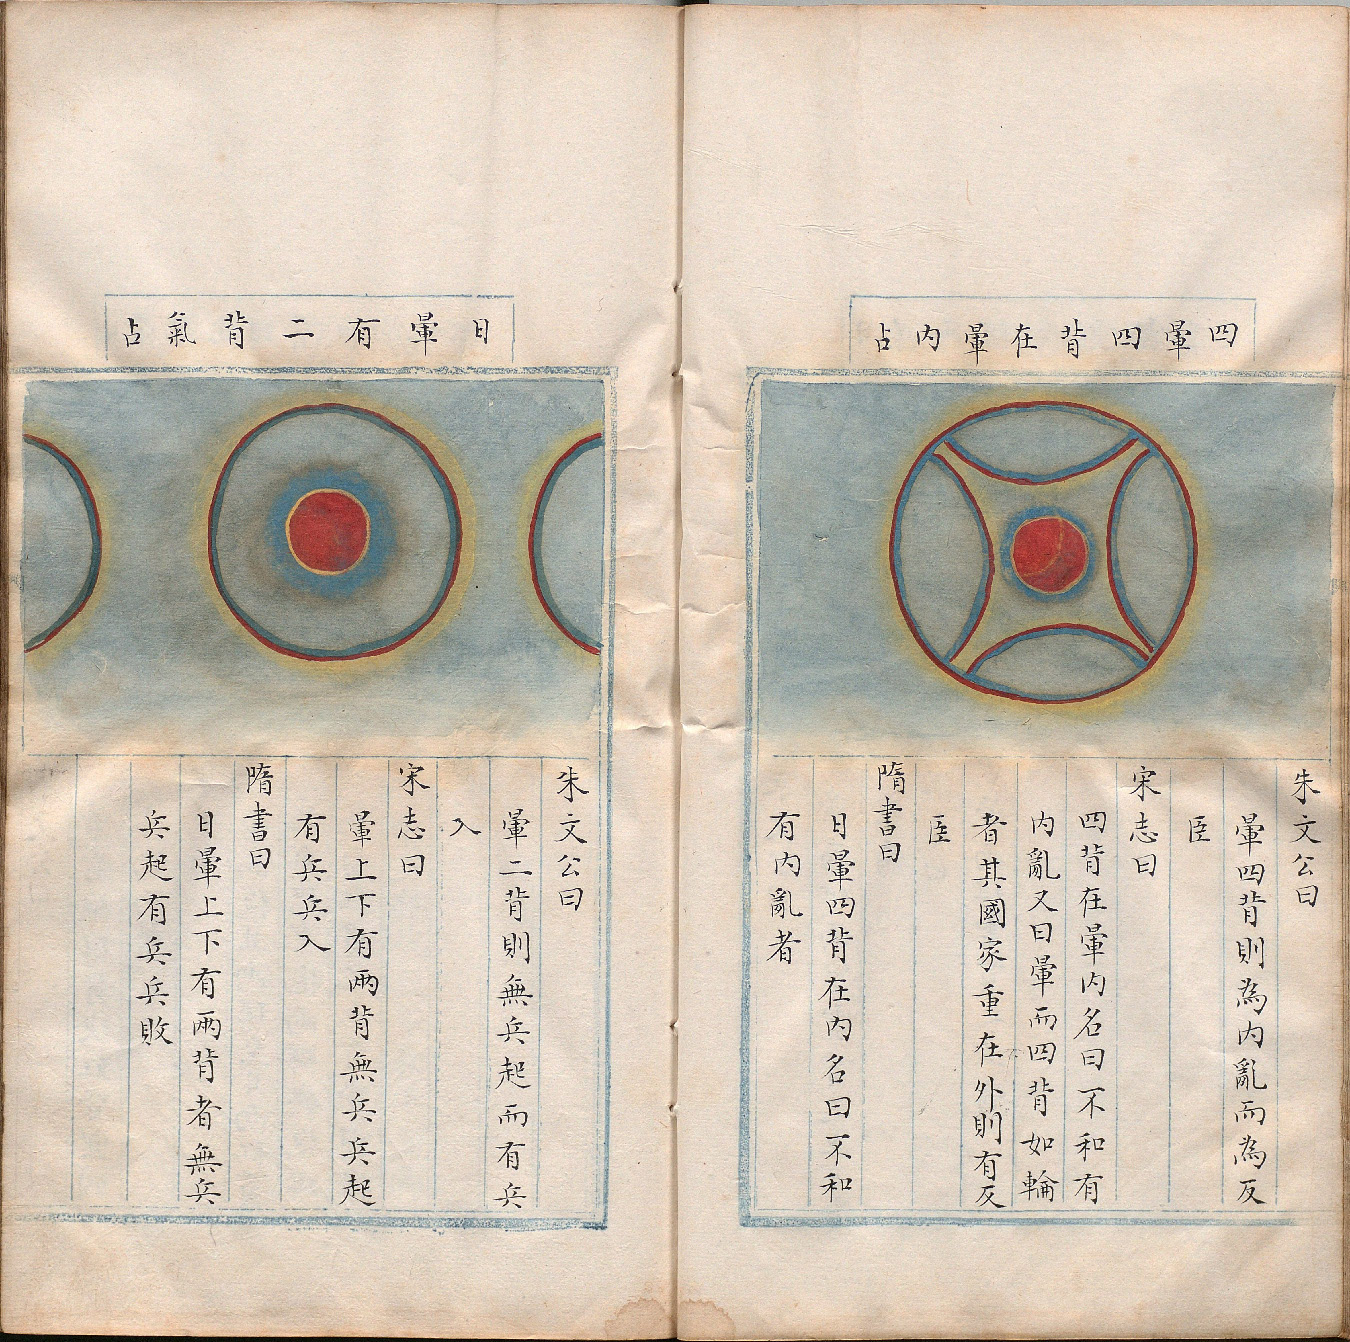 四暈四背在暈内占
朱文公曰
暈四背則為内亂而為反
臣
宋志曰
四背在暈内名曰不和有
内亂又曰暈而四背如輪
者其國家重在外則有反
臣
隋書曰
日暈四背在内名曰不和
有内亂者
日暈有二背氣占
朱文公曰
暈二背則無兵起而有兵
入
宋志曰
暈上下有兩背無兵兵起
有兵兵入
隋書曰
日暈上下有兩背者無兵
兵起有兵兵敗